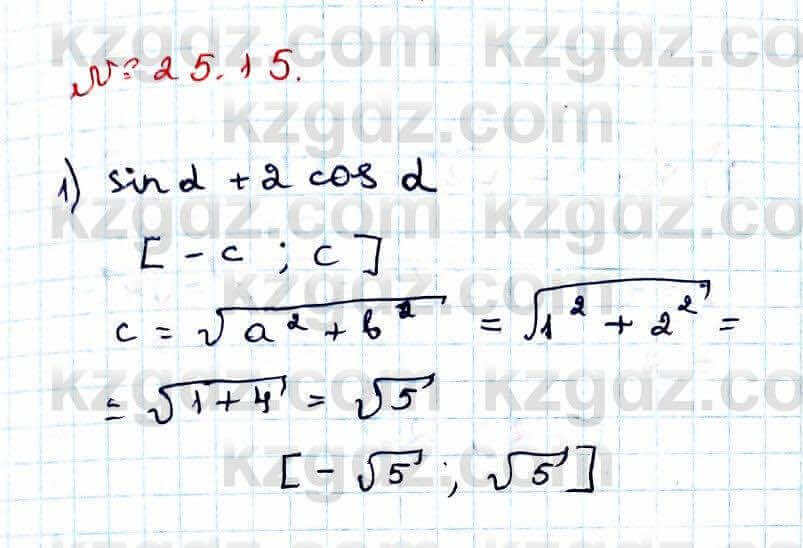 № 25.15.
1) sin α + 2 cos α
[ - c ; c ]
c = √(a² + b²) = √(1² + 2²) =
= √(1 + 4) = √5
[ - √5 ; √5 ]
kzgdz.com